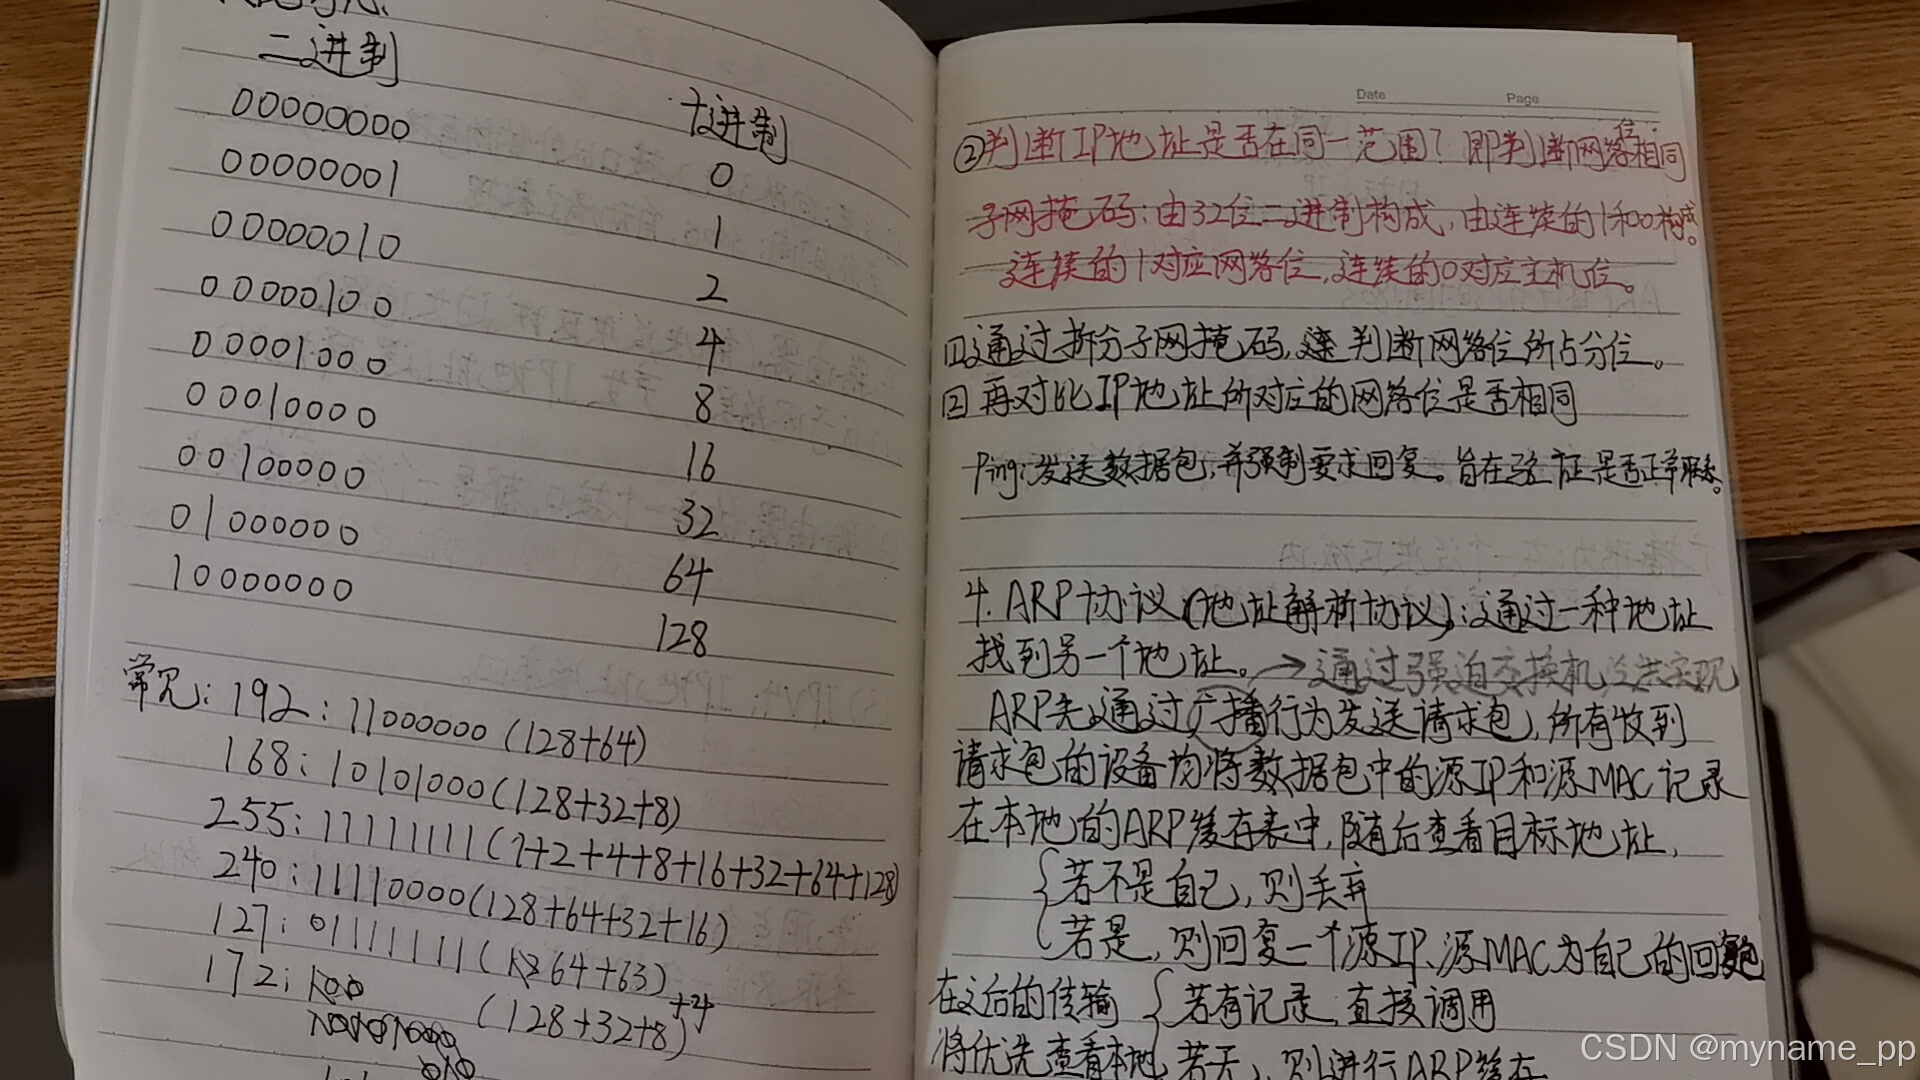 二进制
十进制
00000000 0
00000001 1
00000010 2
00000100 4
00001000 8
00010000 16
00100000 32
01000000 64
10000000 128
常见：192：11000000（128+64）
168：10101000（128+32+8）
255：11111111（1+2+4+8+16+32+64+128）
240：11110000（128+64+32+16）
127：01111111（64+63）
172：（128+32+8）+4
Date Page
②判断IP地址是否在同一范围？即判断网络位相同
子网掩码：由32位二进制构成，由连续的1和0构成。
连续的1对应网络位，连续的0对应主机位。
[1]通过拆分子网掩码，判断网络位所占分位。
[2]再对比IP地址所对应的网络位是否相同
Ping：发送数据包，并强制要求回复。旨在验证是否正常联系。
4. ARP协议（地址解析协议）：通过一种地址
找到另一个地址。→通过强迫交换机泛洪实现
ARP先通过广播行为发送请求包，所有收到
请求包的设备均将数据包中的源IP和源MAC记录
在本地的ARP缓存表中，随后查看目标地址，
若不是自己，则丢弃
若是，则回复一个源IP、源MAC为自己的回复包
在之后的传输 若有记录，直接调用
将优先查看本地 若无，则进行ARP缓存
CSDN @myname_pp